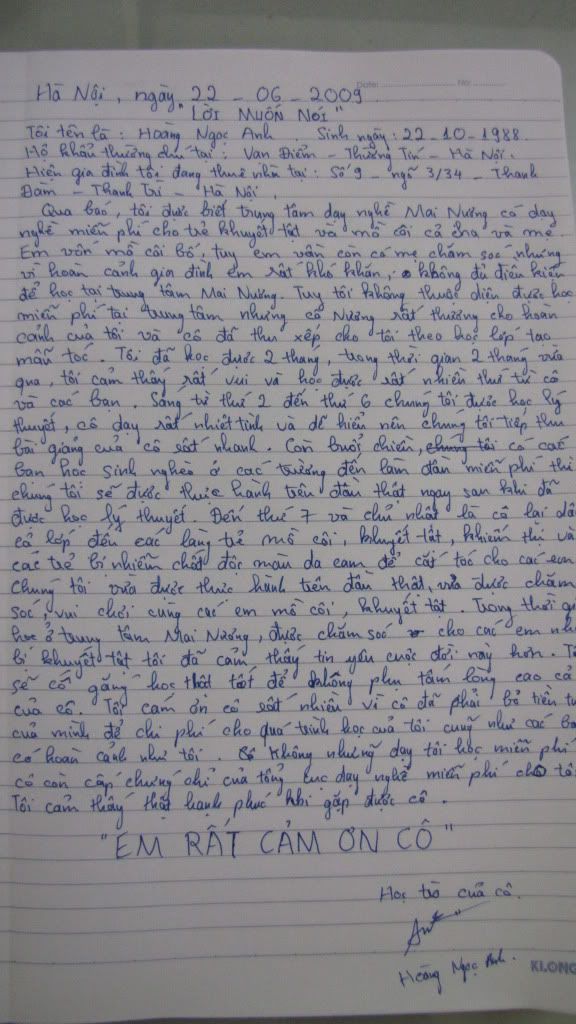 Date: No:
Hà Nội, ngày 22 - 06 - 2009.
"LỜI MUỐN NÓI"
Tôi tên là : Hoàng Ngọc Anh. Sinh ngày : 22-10-1988.
Hộ khẩu thường chú tại : Van Điểm - Thường Tín - Hà Nội.
Hiện gia đình tôi đang thuê nhà tại : Số 9 - ngõ 3/34 - Thanh
Đàm - Thanh Trì - Hà Nội.
Qua báo, tôi được biết trung tâm dạy nghề Mai Nương có dạy
nghề miễn phí cho trẻ khuyết tật và mồ côi cả cha và mẹ.
Em vốn mồ côi bố, tuy em vẫn còn có mẹ chăm sóc nhưng
vì hoàn cảnh gia đình em rất khó khăn, không đủ điều kiện
để học tại trung tâm Mai Nương. Tuy tôi không thuộc diện được học
miễn phí tại trung tâm nhưng cô Nương rất thương cho hoàn
cảnh của tôi và cô đã thu xếp cho tôi theo học lớp tạo
mẫu tóc. Tôi đã học được 2 tháng, trong thời gian 2 tháng vừa
qua, tôi cảm thấy rất vui và học được rất nhiên thứ từ cô
và các bạn. Sáng từ thứ 2 đến thứ 6 chúng tôi được học lý
thuyết, cô dạy rất nhiệt tình và dễ hiểu nên chúng tôi tiếp thu
bài giảng của cô rất nhanh. Còn buổi chiều, chúng tôi có các
bạn học sinh nghèo ở các trường đến làm đầu miễn phí thì
chúng tôi sẽ được thực hành trên đầu thật ngay sau khi đã
được học lý thuyết. Đến thứ 7 và chủ nhật là cô lại dẫ
cả lớp đến các làng trẻ mồ côi, khuyết tật, khiếm thị và
các trẻ bị nhiễm chất độc màu da cam để cắt tóc cho các em.
Chúng tôi vừa được thực hành trên đầu thật, vừa được chăm
sóc, vui chơi cùng các em mồ côi, khuyết tật. Trong thời gi
học ở trung tâm Mai Nương, được chăm sóc cho các em nh
bị khuyết tật tôi đã cảm thấy tin yêu cuộc đời này hơn. T
sẽ cố gắng học thật tốt để không phụ tấm lòng cao cả
của cô. Tôi cám ơn cô rất nhiều vì cô đã phải bỏ tiền tú
của mình để chi phí cho quá trình học của tôi cũng như các bạ
có hoàn cảnh như tôi. Cô không những dạy tôi học miễn phí
cô còn cấp chứng chỉ của tổng cục dạy nghề miễn phí cho tô
Tôi cảm thấy thật hạnh phúc khi gặp được cô.
"EM RẤT CẢM ƠN CÔ"
Học trò của cô.
Hoàng Ngọc Anh.
KLONG